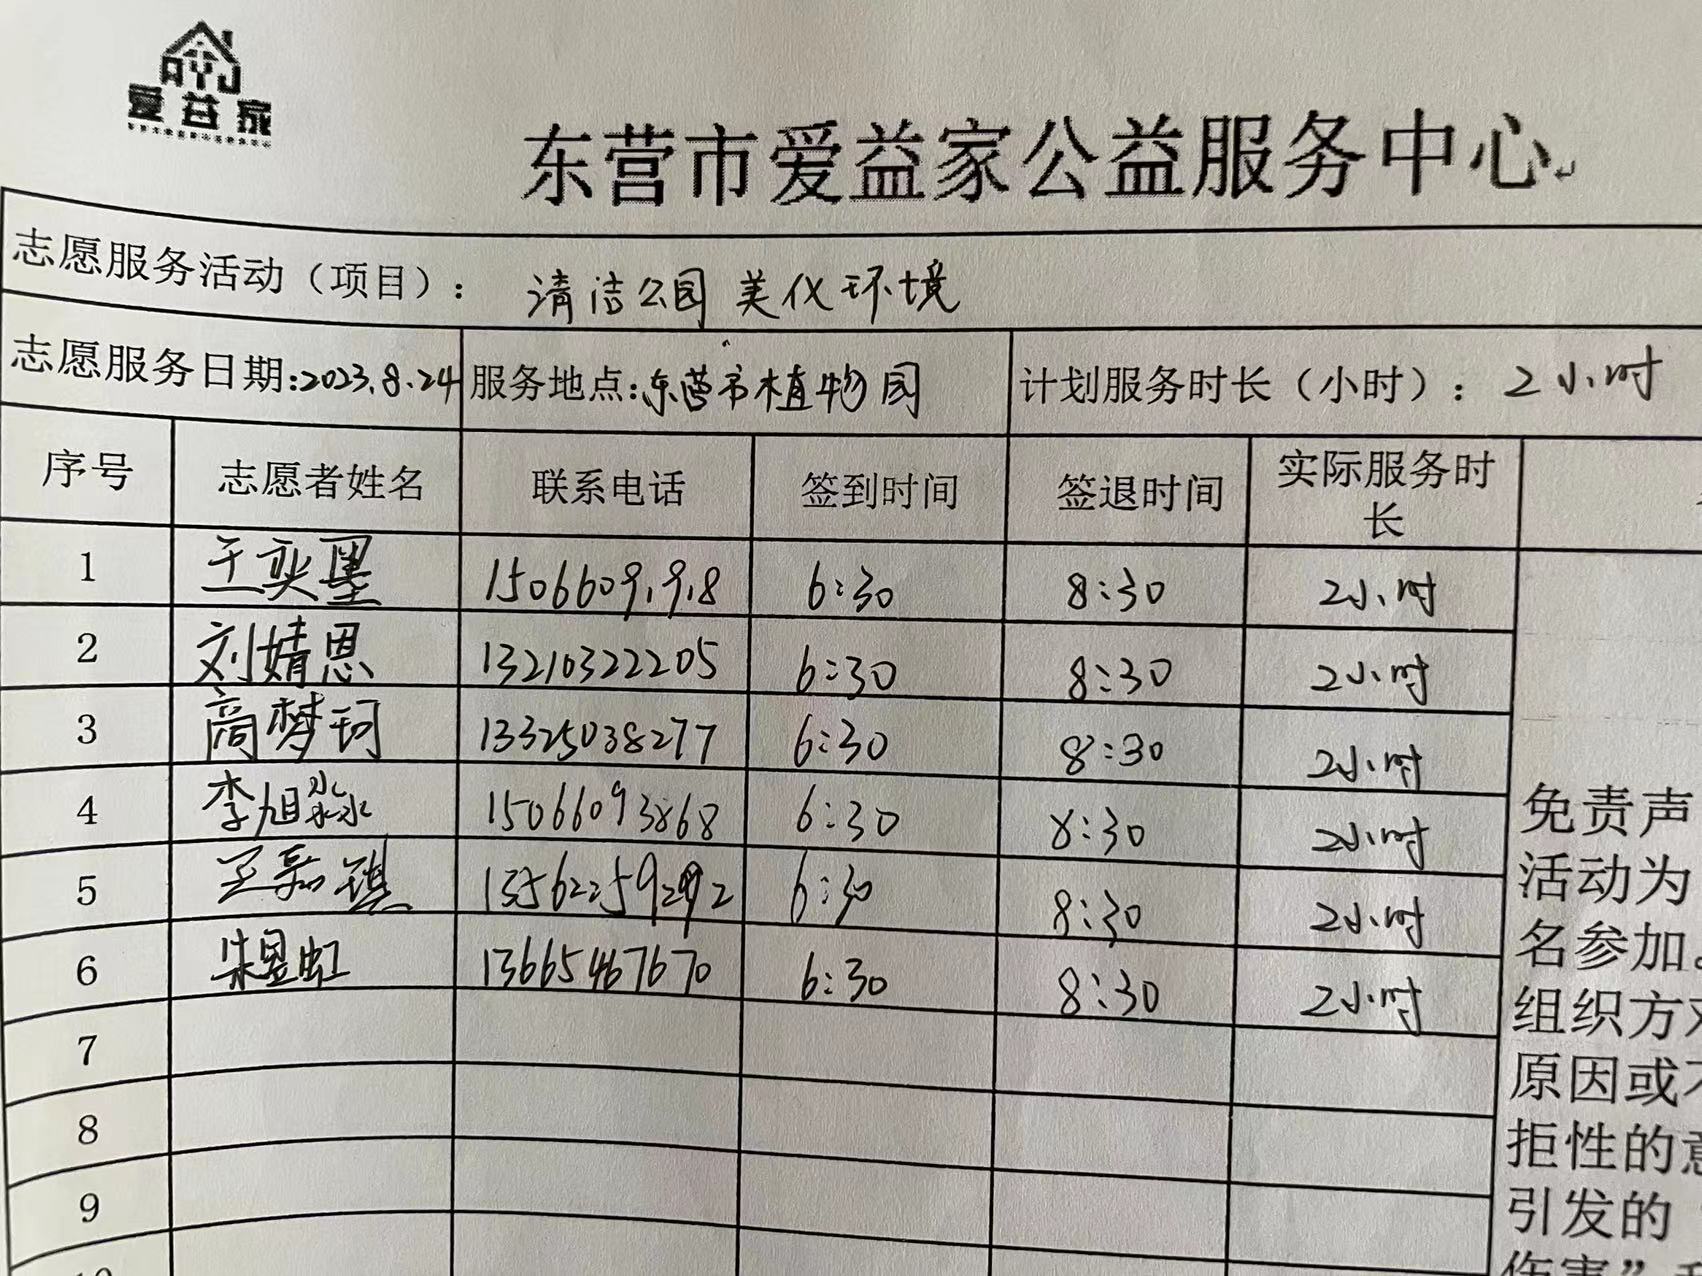 AYJ
爱益家
东营市爱益家公益服务中心
志愿服务活动（项目）： 清洁公园 美仪环境
志愿服务日期:2023.8.24 服务地点:东营市植物园 计划服务时长（小时）： 2小时
序号 志愿者姓名 联系电话 签到时间 签退时间 实际服务时长
1 王奕墨 6:30 8:30 2小时
2 刘婧思 13210322205 6:30 8:30 2小时
3 高梦珂 13325038277 6:30 8:30 2小时
4 李旭淼 15066093868 6:30 8:30 2小时
5 王嘉祺 6:30 8:30 2小时
6 朱昱虹 13665467670 6:30 8:30 2小时
7
8
9
10
免责声
活动为
名参加。
组织方对
原因或不
拒性的意
引发的
伤害”